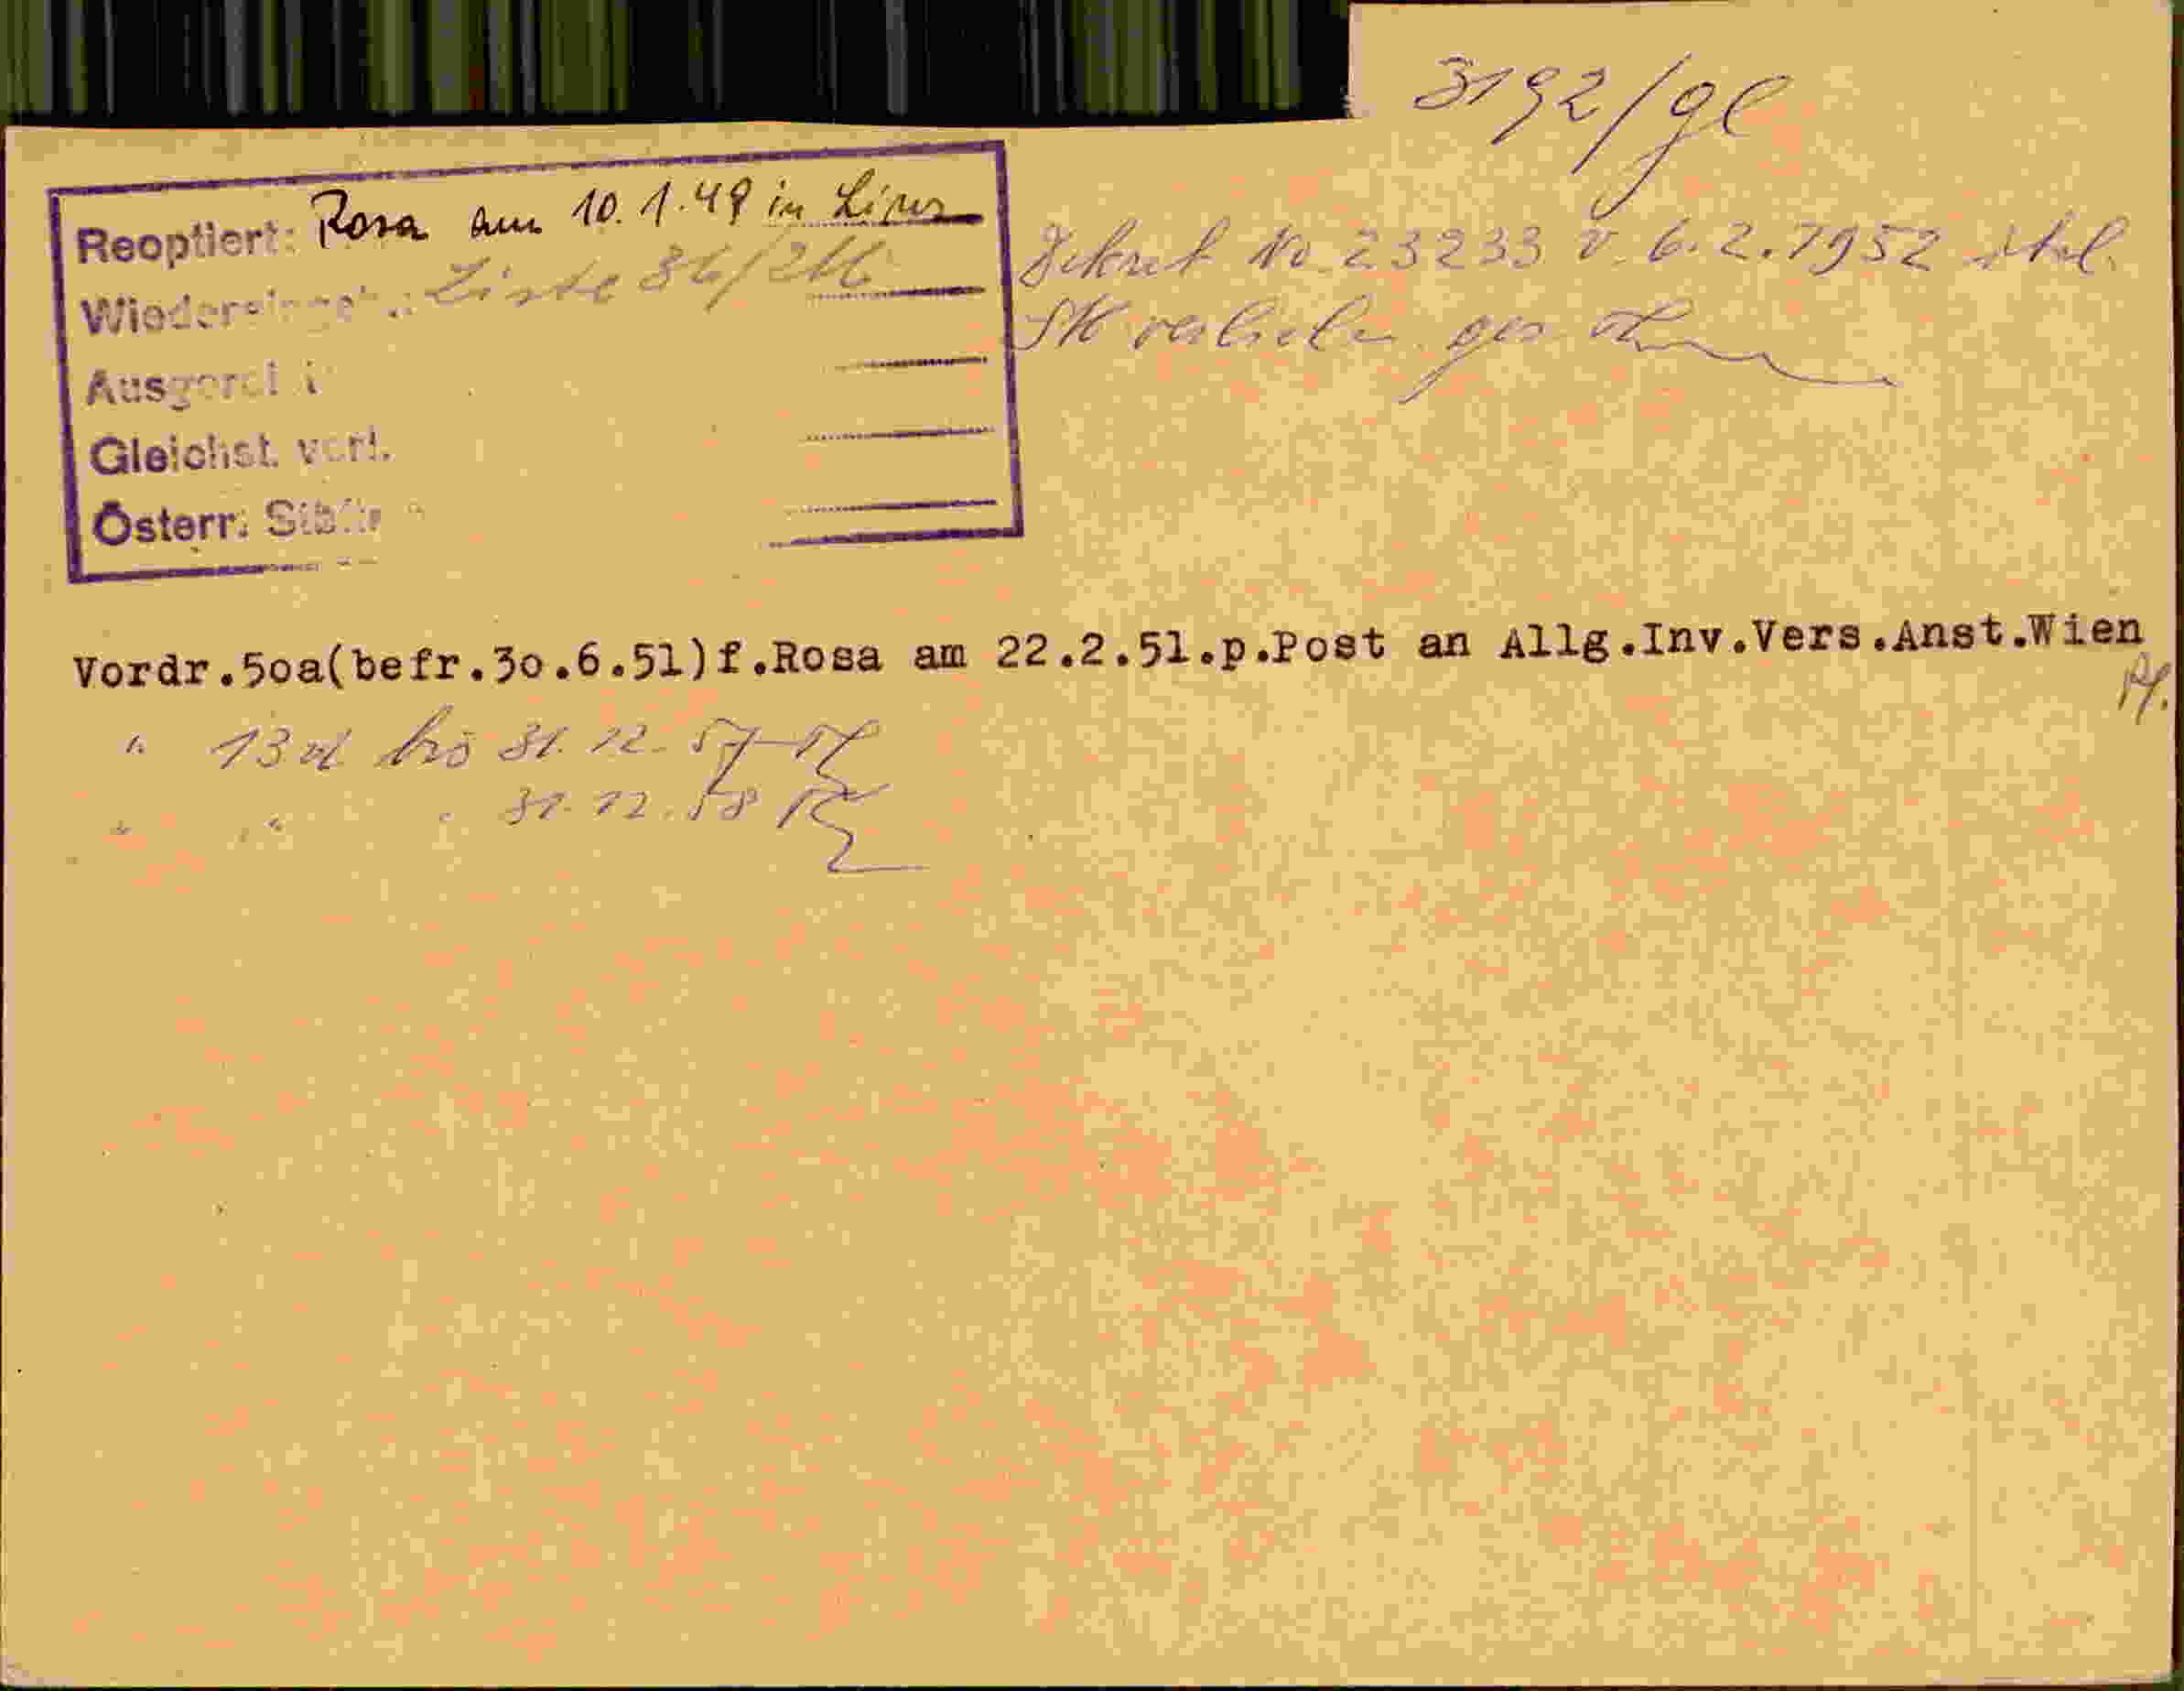 3192/gl
Reoptiert: Rosa am 10.1.49 in Linz
Liste 36/216
Dekret No 23233 v. 6.2.1952 ital.
Gleichst. verl.
Österr.
Vordr.5oa(befr.3o.6.51)f.Rosa am 22.2.51.p.Post an Allg.Inv.Vers.Anst.Wien
" 13 bis 31.12.57
" " " 31.12.58